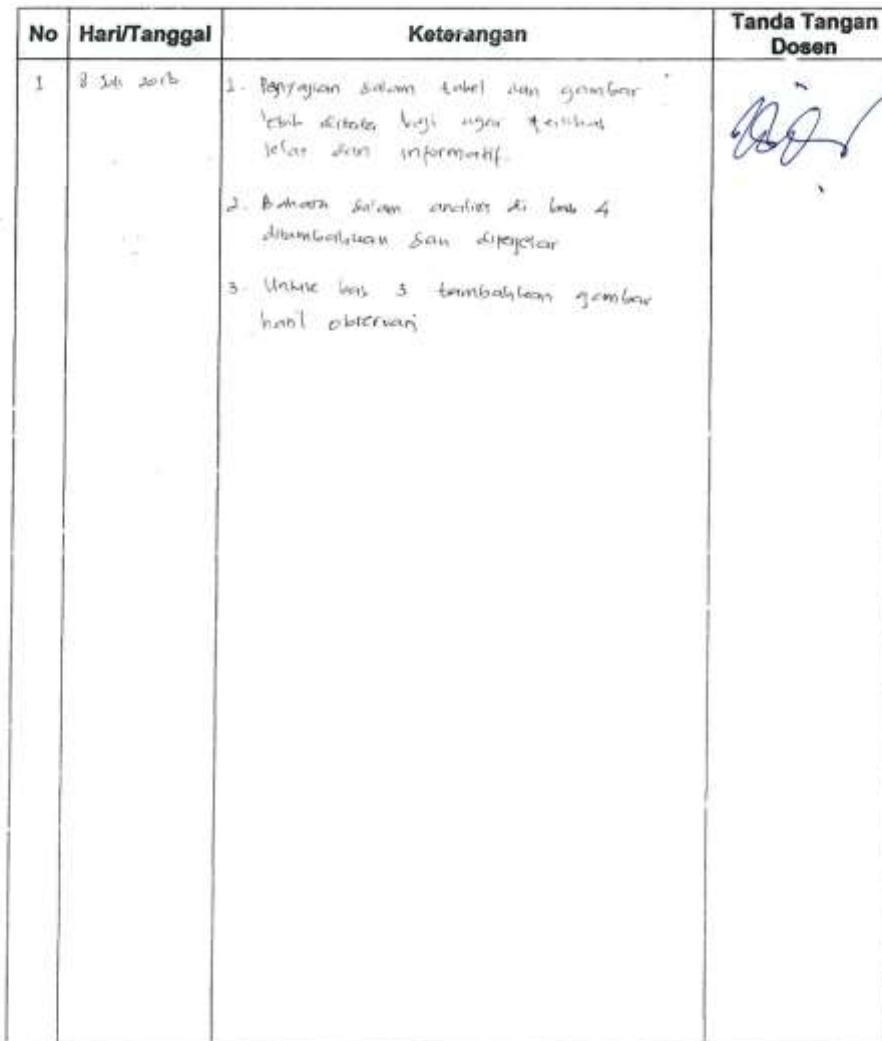 No Hari/Tanggal Keterangan Tanda Tangan Dosen
1 8 Juli 1. Penyajian dalam tabel dan gambar
lebih ditata lagi agar terlihat
jelas dan informatif.
2. Bahasa dalam analisis di bab 4
ditambahkan dan diperjelas
3. Untuk bab 3 tambahkan gambar
hasil observasi